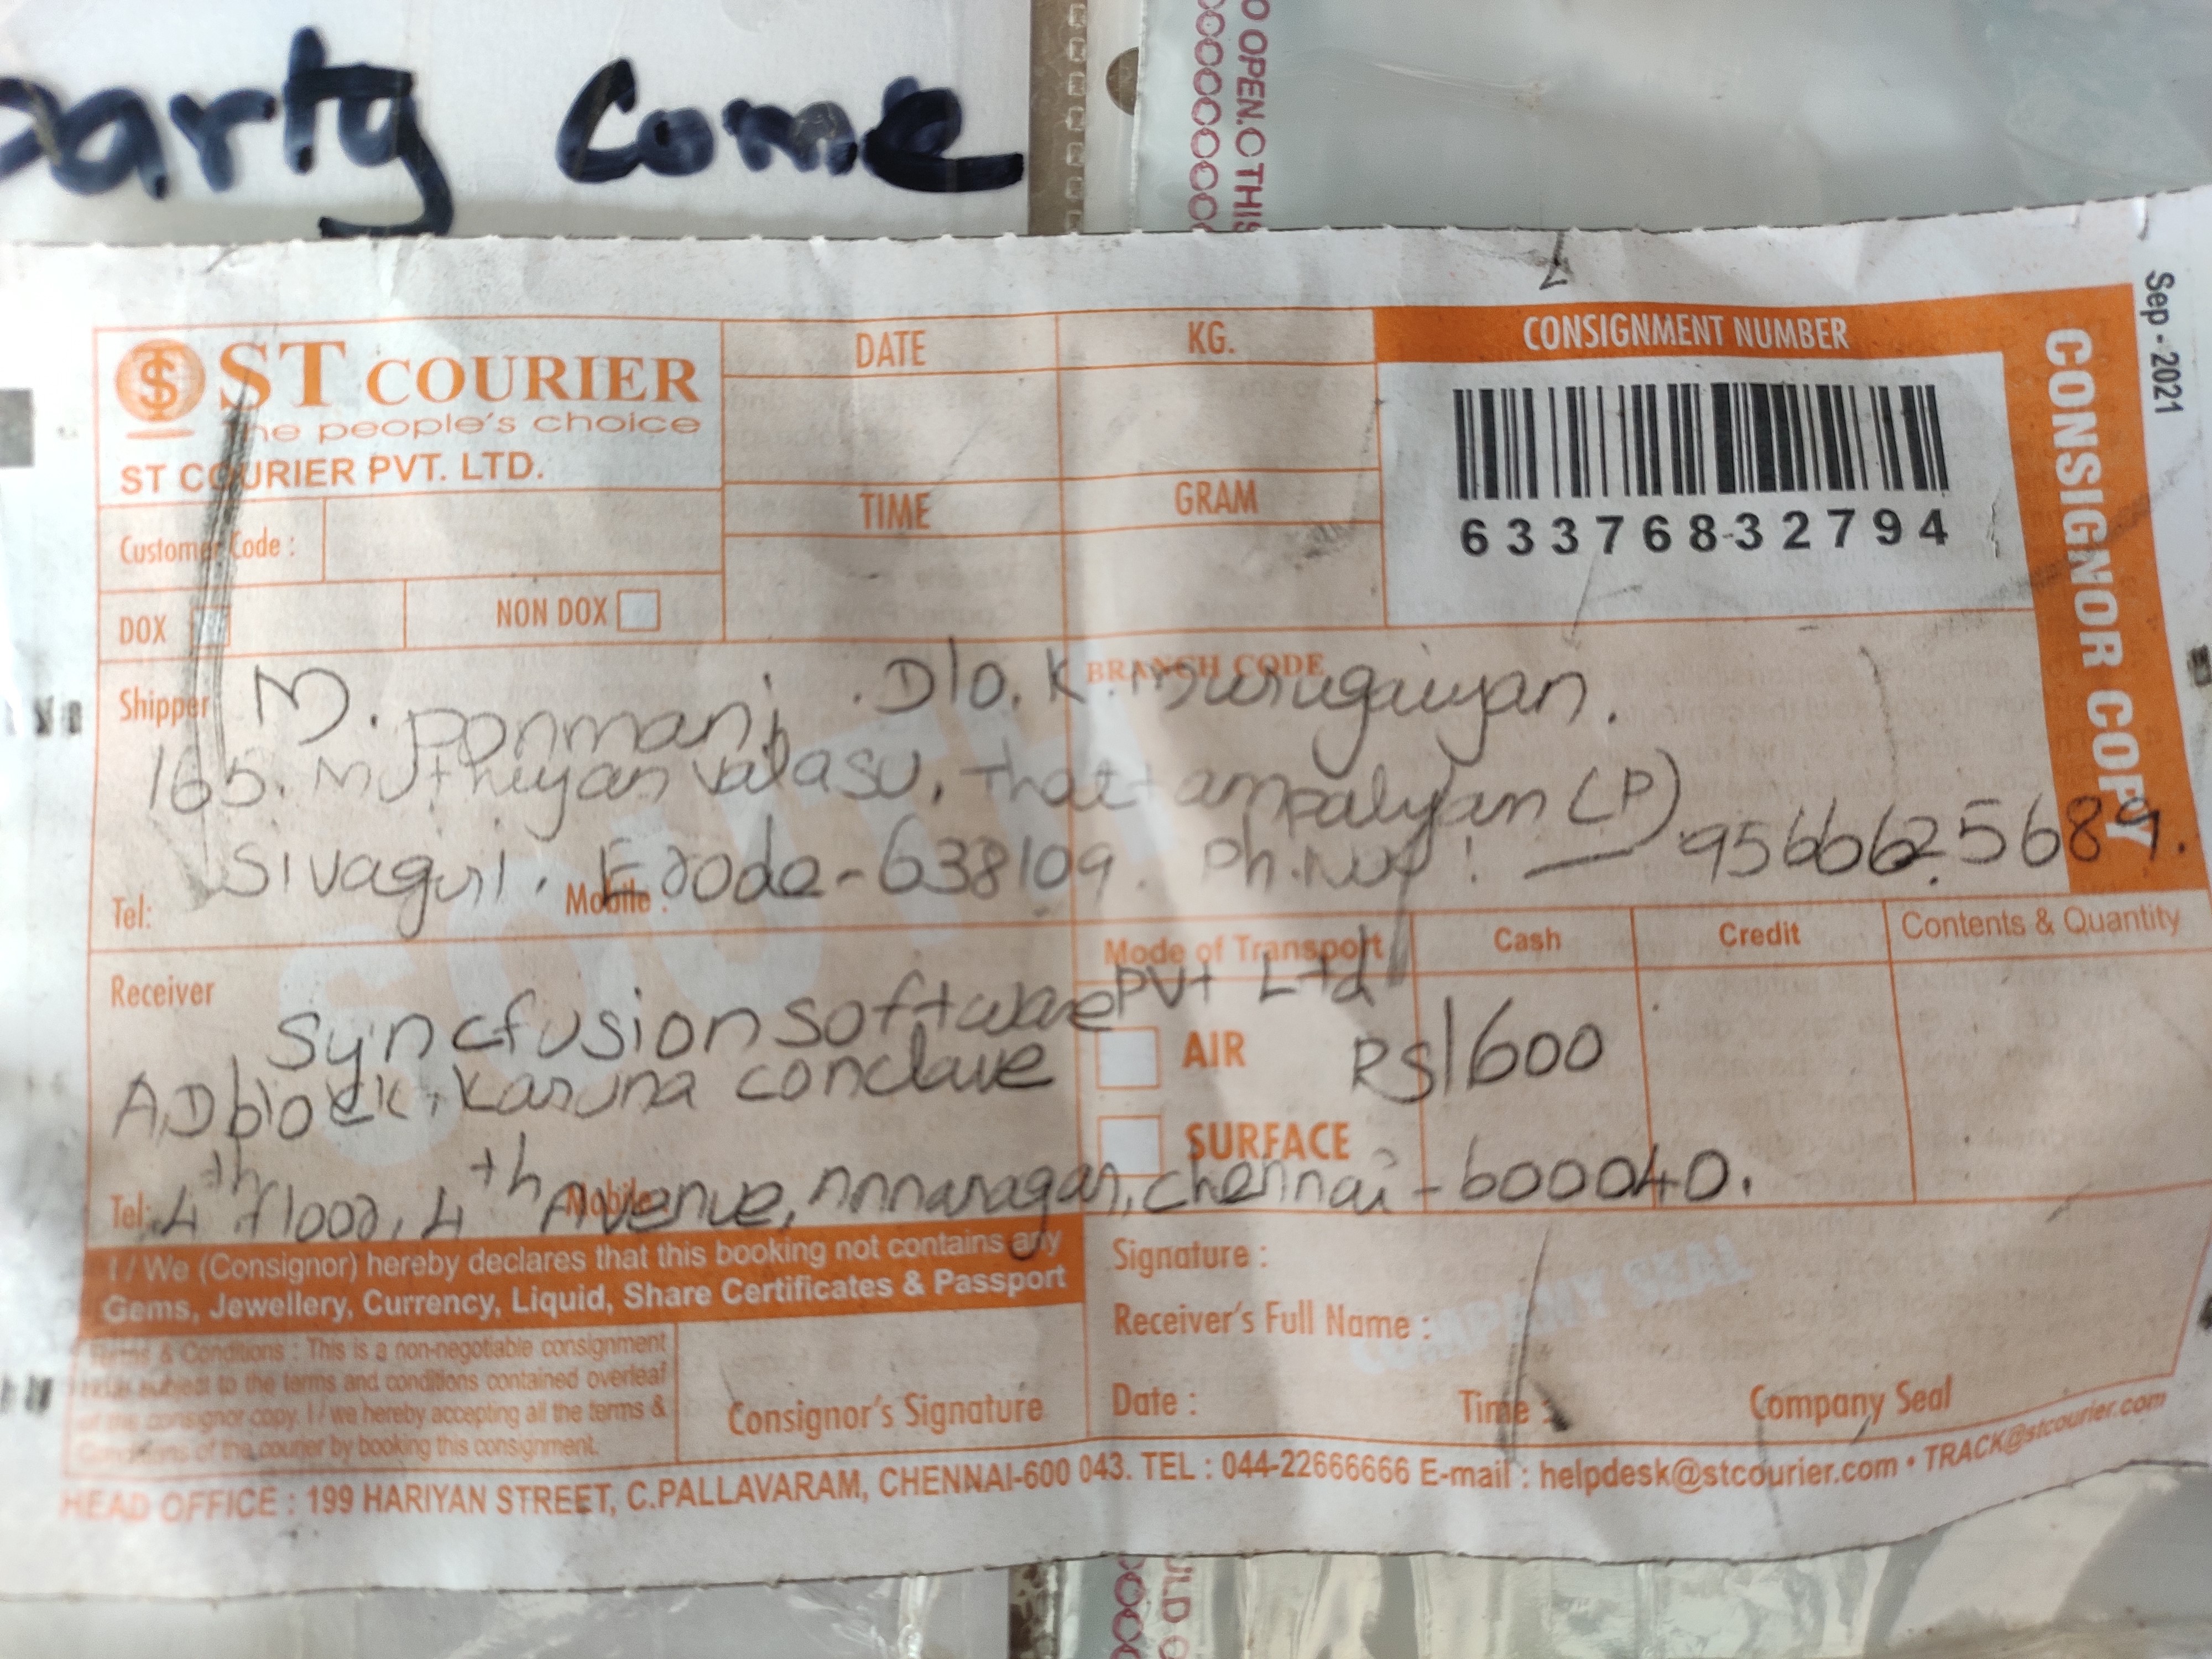 party Come
O OPEN.C THIS
Sep - 2021
ST COURIER
the people's choice
ST COURIER PVT. LTD.
DATE
KG.
CONSIGNMENT NUMBER
63376832794
CONSIGNOR COPY
TIME
GRAM
Customer Code :
DOX
NON DOX
BRANCH CODE
Shipper M. ponmani . D/o. K. Murugaiyan.
165. Muthiyan valasu, That tampalyam (P)
Sivagiri. Erode-638109. Ph.No : — 9566625689.
Tel:
Mobile :
SOUTH
Mode of Transport
Cash
Credit
Contents & Quantity
Receiver
Syncfusion software Pvt Ltd
A.D block, Karuna conclave
AIR
Rs 1600
SURFACE
4th floor, 4th Avenue, nnnanagar, chennai - 600040.
Tel:
Mobile:
I / We (Consignor) hereby declares that this booking not contains any
Gems, Jewellery, Currency, Liquid, Share Certificates & Passport
Terms & Conditions : This is a non-negotiable consignment
subject to the terms and conditions contained overleaf
of the consignor copy. I / we hereby accepting all the terms &
Conditions of the courier by booking this consignment.
Consignor's Signature
Signature :
Receiver's Full Name :
COMPANY SEAL
Date :
Time :
Company Seal
HEAD OFFICE : 199 HARIYAN STREET, C.PALLAVARAM, CHENNAI-600 043. TEL : 044-22666666 E-mail : helpdesk@stcourier.com • TRACK@stcourier.com
ULD